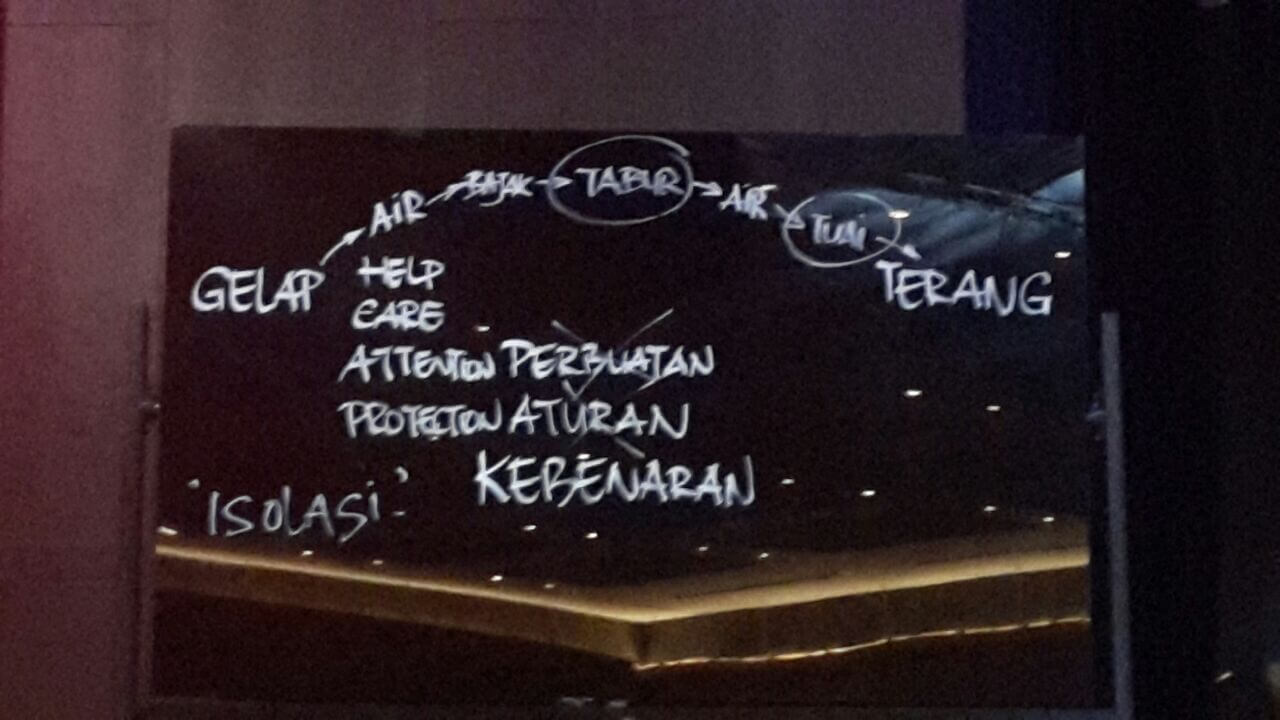 GELAP → AIR → BAJAK → TABUR → AIR → TUAI → TERANG
HELP
CARE
ATTENTION PERBUATAN
PROTECTION ATURAN
KEBENARAN
'ISOLASI'